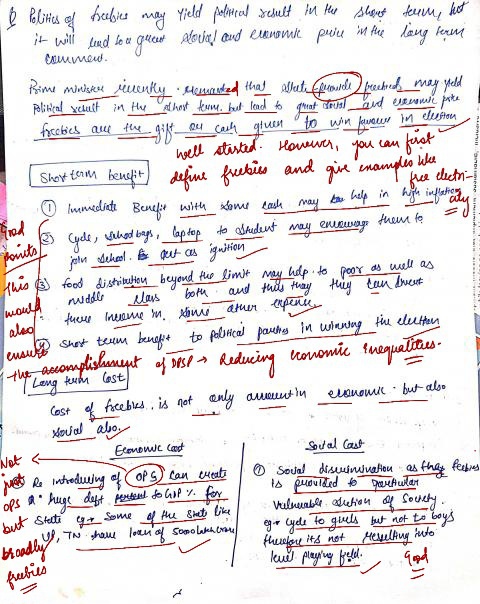 Q Politics of freebies may yield political result in the short term, but
it will lead to a great social and economic price in the long term
comment.
Prime minister recently remarked that state provide freebies, may yield
political result in the short term. but lead to great social and economic price
freebies are the gift or cash given to win favour in election
Well started. However, you can first
define freebies and give examples like
free electricity
Short term benefit
① Immediate Benefit with some cash may help in high inflation
② Cycle, school bags, laptop to student may encourage them to
join school. act as ignition
③ food distribution beyond the limit may help to poor as well as
middle class both and thus they can invest
there income in some other expence
④ Short term benefit to political parties in winning the election
Good
points
This
would
also
ensure
the accomplishment of DPSP → Reducing economic inequalities.
Long term Cost
Cost of freebies is not only amount in economic but also
social also.
Economic Cost
Re introducing of OPS can create
a huge debt to GDP % for
State eg Some of the state like
UP, TN have loan of
Not
just
OPS
but
broadly
freebies
Social Cost
① Social discrimination as they freebies
is provided to particular
vulnerable section of society.
eg cycle to girls but not to boys
therefore its not resulting into
level playing field.
Good